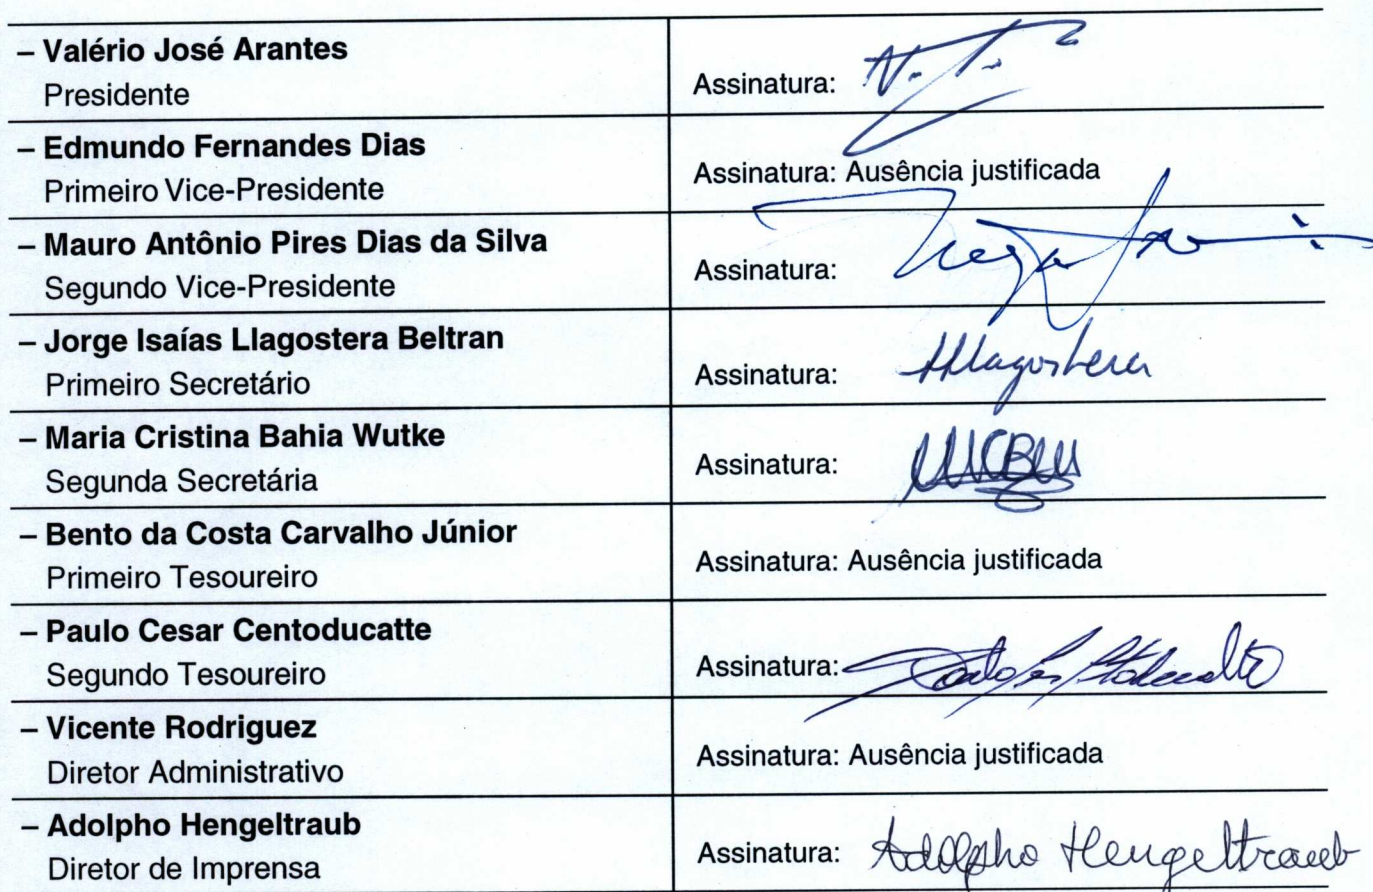 – Valério José Arantes
Presidente
Assinatura:
– Edmundo Fernandes Dias
Primeiro Vice-Presidente
Assinatura: Ausência justificada
– Mauro Antônio Pires Dias da Silva
Segundo Vice-Presidente
Assinatura:
– Jorge Isaías Llagostera Beltran
Primeiro Secretário
Assinatura: Llagostera
– Maria Cristina Bahia Wutke
Segunda Secretária
Assinatura: MCBW
– Bento da Costa Carvalho Júnior
Primeiro Tesoureiro
Assinatura: Ausência justificada
– Paulo Cesar Centoducatte
Segundo Tesoureiro
Assinatura:
– Vicente Rodriguez
Diretor Administrativo
Assinatura: Ausência justificada
– Adolpho Hengeltraub
Diretor de Imprensa
Assinatura: Adolpho Hengeltraub